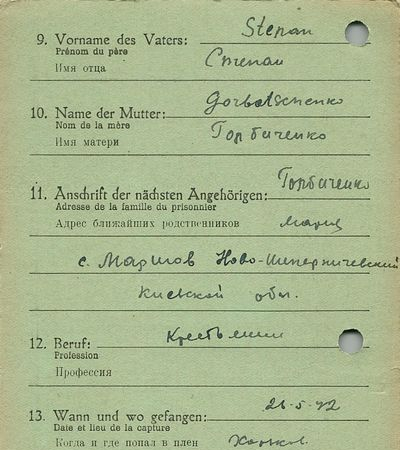 9. Vorname des Vaters: Stepan
Prénom du père
Имя отца Степан
10. Name der Mutter: Gorbatschenko
Nom de la mère Горбаченко
Имя матери
11. Anschrift der nächsten Angehörigen: Горбаченко
Adresse de la famille du prisonnier
Адрес ближайших родственников Мария
с. Ново-
Киевской обл.
12. Beruf: Крестьянин
Profession
Профессия
13. Wann und wo gefangen: 5-42
Date et lieu de la capture
Когда и где попал в плен Харков.